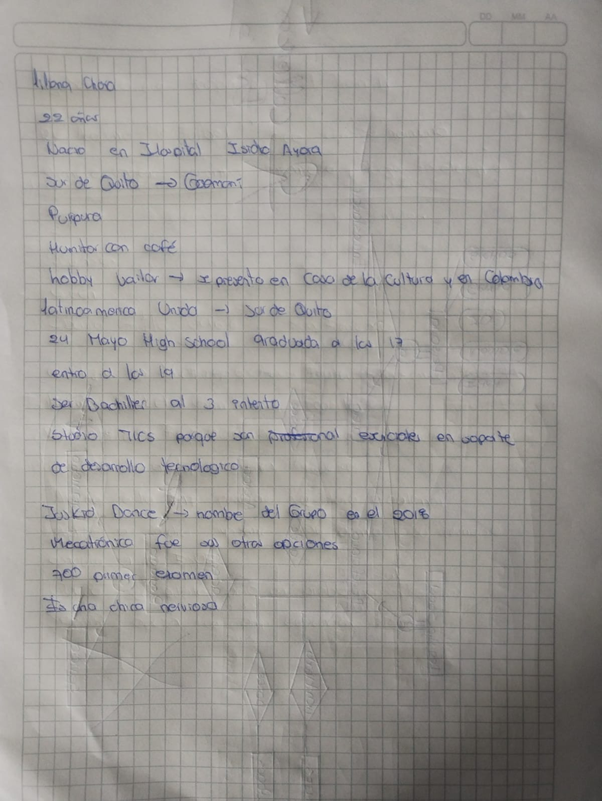 22 años
Nacio en Hospital Isidro Ayora
sur de Quito → Guamani
Purpura
Humita con café
hobby bailar → presento en Casa de la Cultura y en Colombia
latinoamerica Unida → sur de Quito
24 Mayo High school graduada a los 17
entro a los 19
Ser Bachiller al 3 intento
Studio TICS porque son esenciales en
de desarrollo tecnologico
Dance → nombre del Grupo en el 2018
Mecatrónica fue sus otras opciones
700 primer examen
chica nerviosa